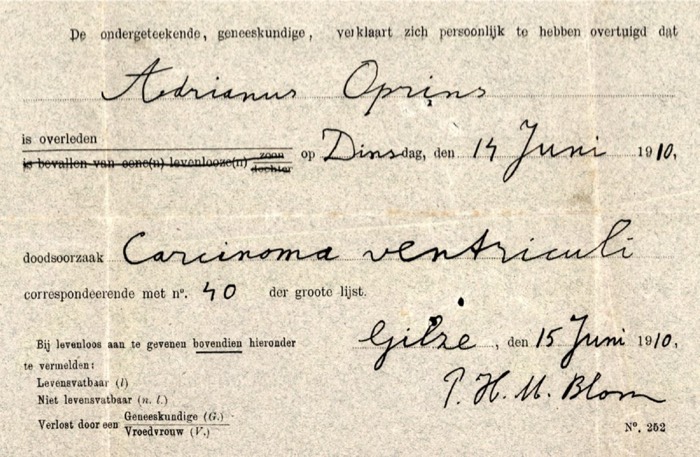 De ondergeteekende, geneeskundige, verklaart zich persoonlijk te hebben overtuigd dat
Adrianus Oprins
is overleden
is bevallen van eene(n) levenlooze(n) zoon dochter op Dinsdag, den 14 Juni 1910,
doodsoorzaak Carcinoma ventriculi
correspondeerende met nº. 40 der groote lijst.
Bij levenloos aan te gevenen bovendien hieronder
te vermelden:
Gilze, den 15 Juni 1910,
Levensvatbaar (l)
Niet levensvatbaar (n. l.)
P. H. M. Blom
Verlost door een Geneeskundige (G.)
Vroedvrouw (V.)
Nº. 252